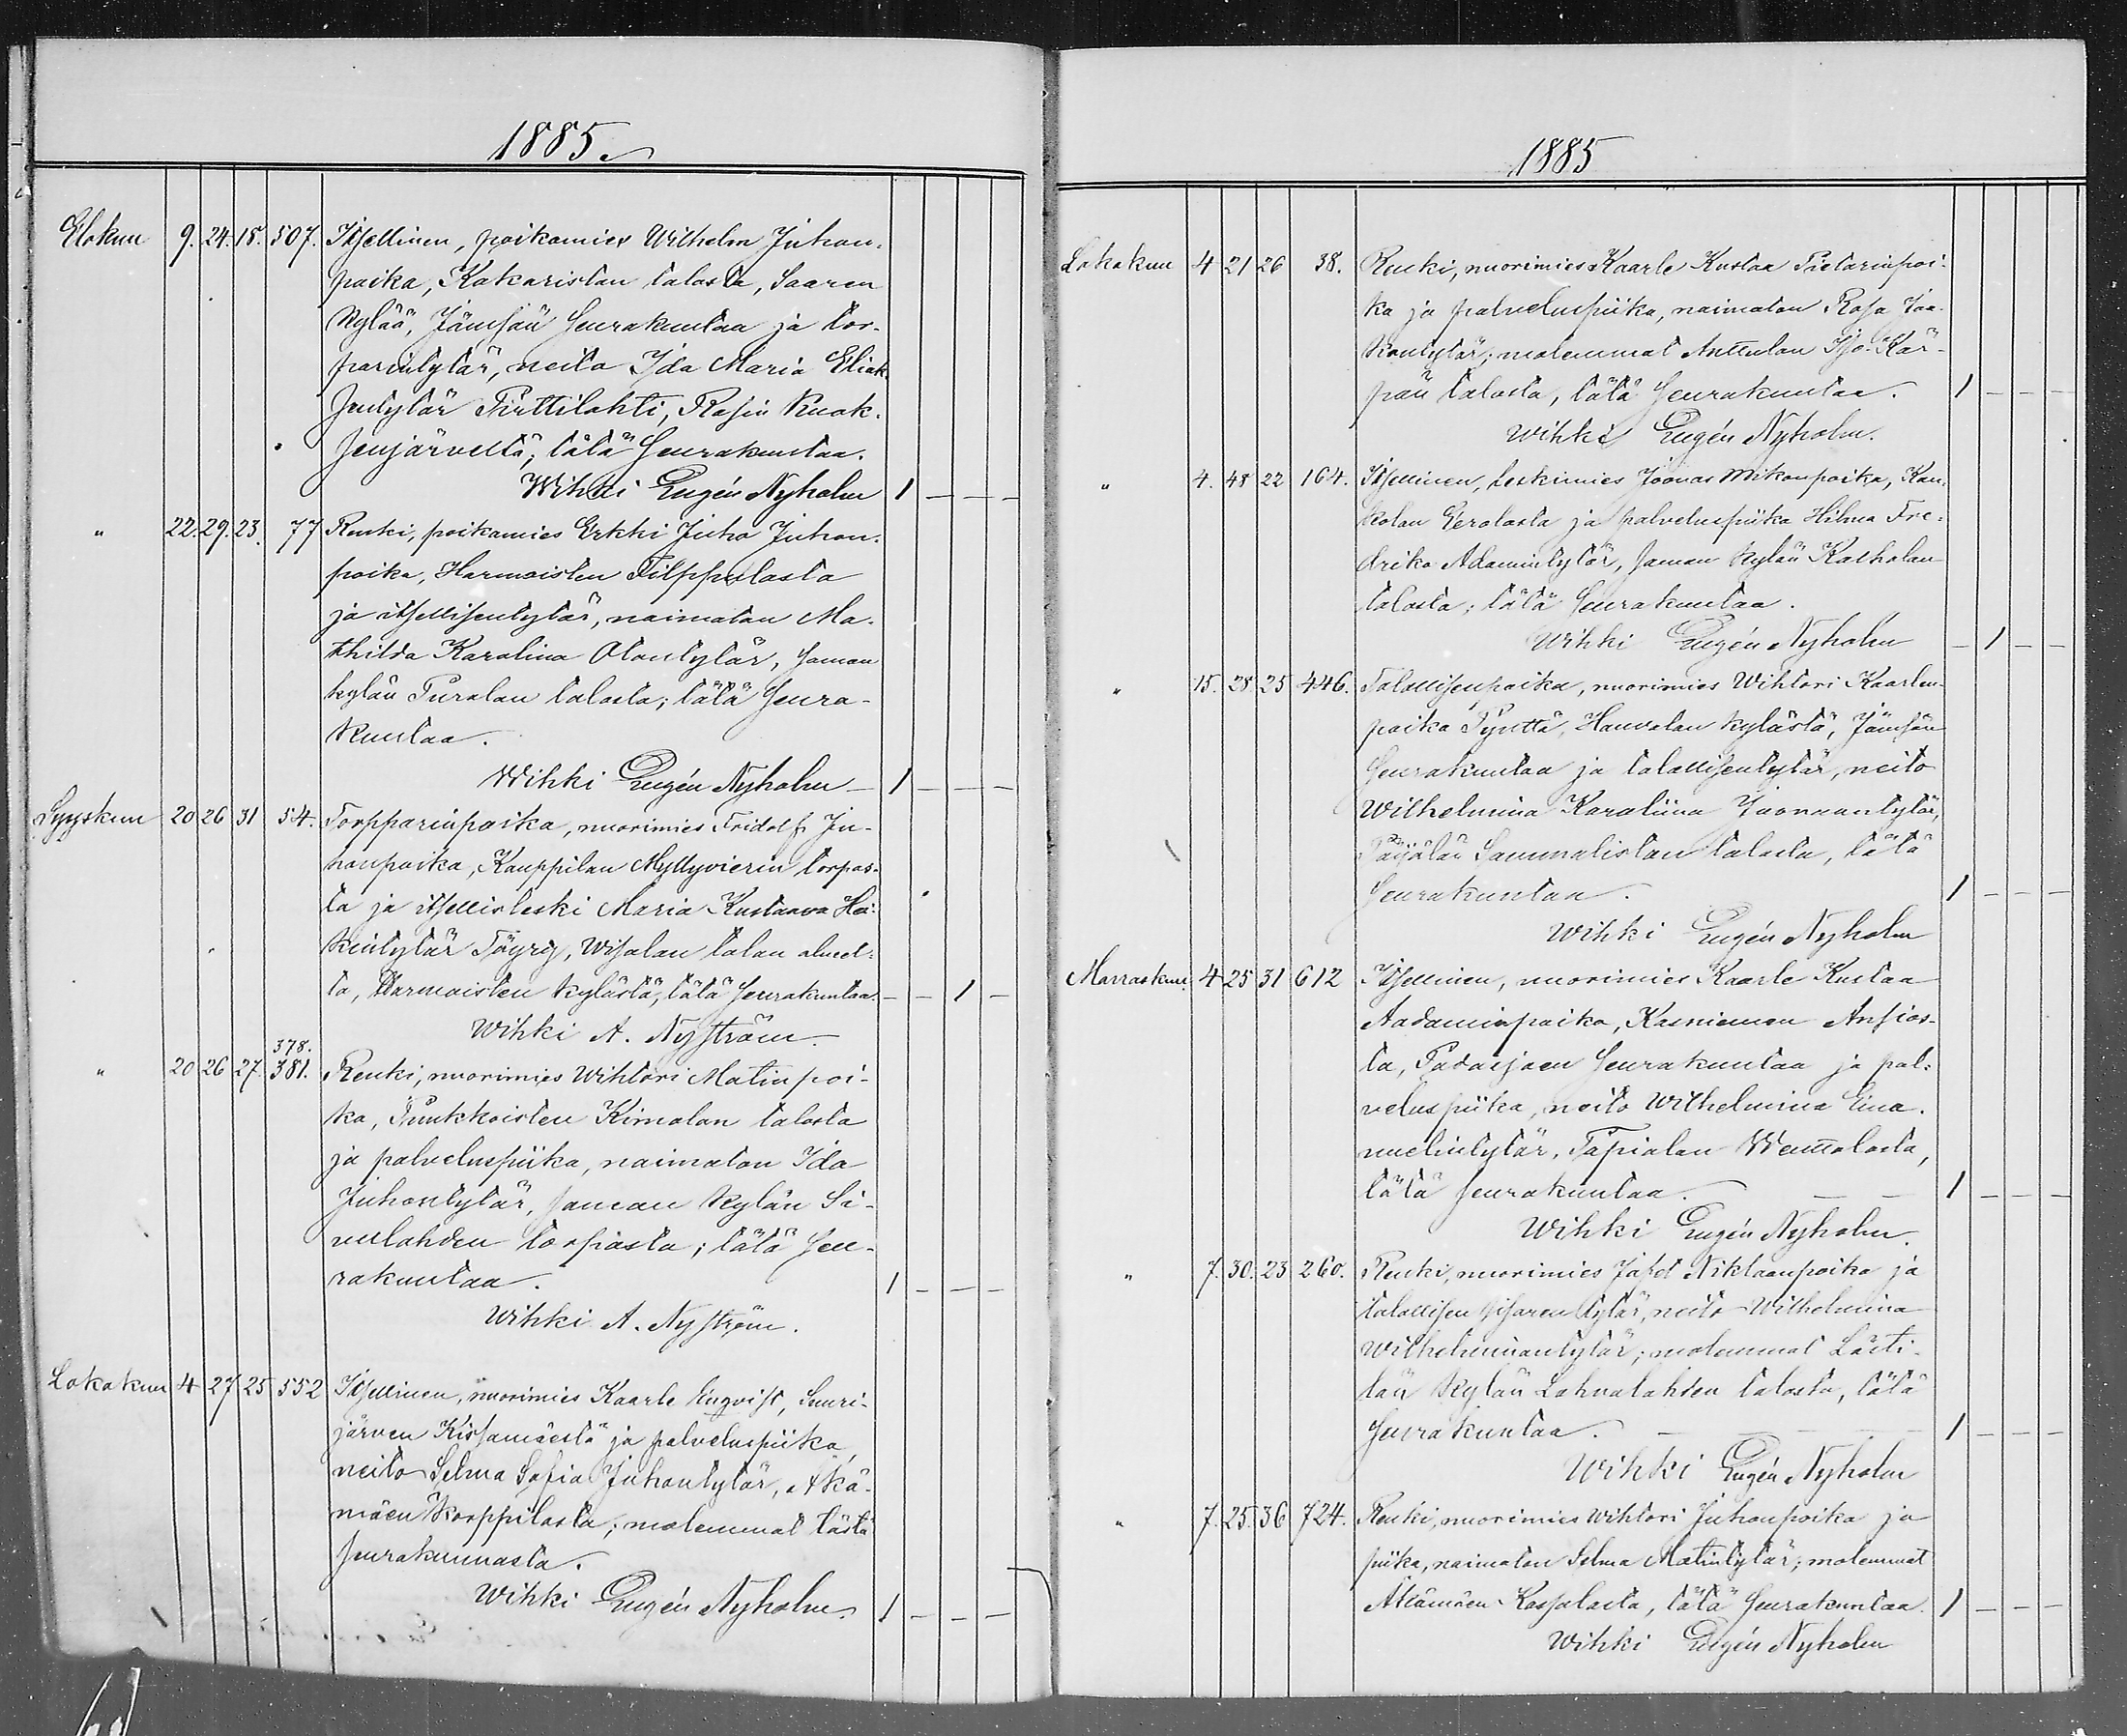 1885.
Elokuu 9. 24. 18. 507. Itsellinen, poikamies Wilhelm Juhon-
poika, Kakaristan talosta, Saaren
kylää, Jämsän seurakuntaa ja tor-
parintytär, neito Ida Maria Eliak-
sentytär Pirttilahti, Rasin Kuok-
senjärveltä; tätä seurakuntaa.
Wihki Eugén Nyholm 1 – – –
" 22. 29. 23. 77 Renki, poikamies Erkki Juho Juhon-
poika, Harmoisten Filppulasta
ja itsellisentytär, naimaton Ma-
thilda Karolina Otontytär, saman
kylän Puralan talosta; tätä seura-
kuntaa.
Wihki Eugén Nyholm – 1 – – –
Syyskuu 20 26 31 54. Torpparinpoika, nuorimies Fridolf Ju-
honpoika, Kauppilan Myllyvierin torpas-
ta ja itsellisleski Maria Kustaava Hei-
kintytär Töyry, Wisalan talon alueel-
ta, Harmoisten kylästä, tätä seurakuntaa. – – 1 –
Wihki A. Nyström.
378.
" 20 26 27. 381. Renki, nuorimies Wihtori Matinpoi-
ka, Kimolan talosta
ja palveluspiika, naimaton Ida
Juhontytär, saman kylän Si-
vulahden torpasta; tätä seu-
rakuntaa. 1 – – –
Wihki A. Nyström.
Lokakuu 4 27 25 552 Itsellinen, nuorimies Kaarle Engvist, Suuri-
järven Kissamäestä ja palveluspiika,
neito Selma Sofia Juhontytär, Akä-
mäen Korppilasta; molemmat tästä
seurakunnasta.
Wihki Eugén Nyholm. 1 – – –
1885
Lokakuu 4 21 26 38. Renki, nuorimies Kaarle Kustaa Pietarinpoi-
ka ja palveluspiika, naimaton Rosa Jaa-
kontytär; molemmat Anttulan Iso-Kär-
pän talosta, tätä seurakuntaa. 1 – – –
Wihki Eugén Nyholm.
" 4. 48 22 164. Itsellinen, leskimies Joonas Mikonpoika, Kau-
kolan Eerolasta ja palveluspiika Hilma Fre-
drika Adamintytär, saman kylän Kalholan
talosta; tätä seurakuntaa.
Wihki Eugén Nyholm – 1 – –
" 15. 28 25 446. Talollisenpoika, nuorimies Wihtori Kaarlen-
poika Pynttä, Hauvolan kylästä, Jämsän
seurakuntaa ja talollisentytär, neito
Wilhelmina Karoliina Joonaantytär,
Päijälän Sammaliston talosta, tätä
seurakuntaa. 1 – – –
Wihki Eugén Nyholm
Marraskuu. 4 25 31 612 Itsellinen, nuorimies Kaarle Kustaa
Aadaminpoika, Kasniemen Ansios-
ta, Padasjoen seurakuntaa ja pal-
veluspiika, neito Wilhelmina Ema-
nuelintytär, Tapialan Wenttolasta,
tätä seurakuntaa. – – 1 – – –
Wihki Eugén Nyholm.
" 7. 30. 23 260. Renki, nuorimies Jafet Niklaanpoika ja
talollisen sisaren tytär, neito Wilhelmina
Wilhelminantytär; molemmat Lästi-
län kylän Lahnalahden talosta, tätä
seurakuntaa. – – 1 – – –
Wihki Eugén Nyholm
" 7. 25. 36 724. Renki, nuorimies Wihtori Juhonpoika ja
piika, naimaton Selma Matintytär; molemmat
Akämäen Kossolasta, tätä seurakuntaa. 1 – – –
Wihki Eugén Nyholm